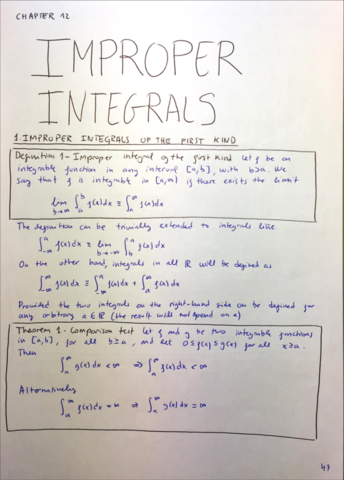 CHAPTER 12
IMPROPER
INTEGRALS
1. IMPROPER INTEGRALS OF THE FIRST KIND
Definition 1 - Improper integral of the first kind Let f be an
integrable function in any interval [a,b], with b>a. We
say that f is integrable in [a,∞) if there exists the limit
lim_{b→∞} ∫_a^b f(x)dx ≡ ∫_a^∞ f(x)dx
The definition can be trivially extended to integrals like
∫_{-∞}^a f(x)dx ≡ lim_{b→-∞} ∫_b^a f(x)dx
On the other hand, integrals in all ℝ will be defined as
∫_{-∞}^∞ f(x)dx ≡ ∫_{-∞}^a f(x)dx + ∫_a^∞ f(x)dx
Provided the two integrals on the right-hand side can be defined for
any arbitrary a∈ℝ (the result will not depend on a)
Theorem 1 - Comparison test Let f and g be two integrable functions
in [a,b], for all b≥a, and let 0≤f(x)≤g(x) for all x≥a.
Then
∫_a^∞ g(x)dx < ∞ ⇒ ∫_a^∞ f(x)dx < ∞
Alternatively
∫_a^∞ f(x)dx = ∞ ⇒ ∫_a^∞ g(x)dx = ∞
47